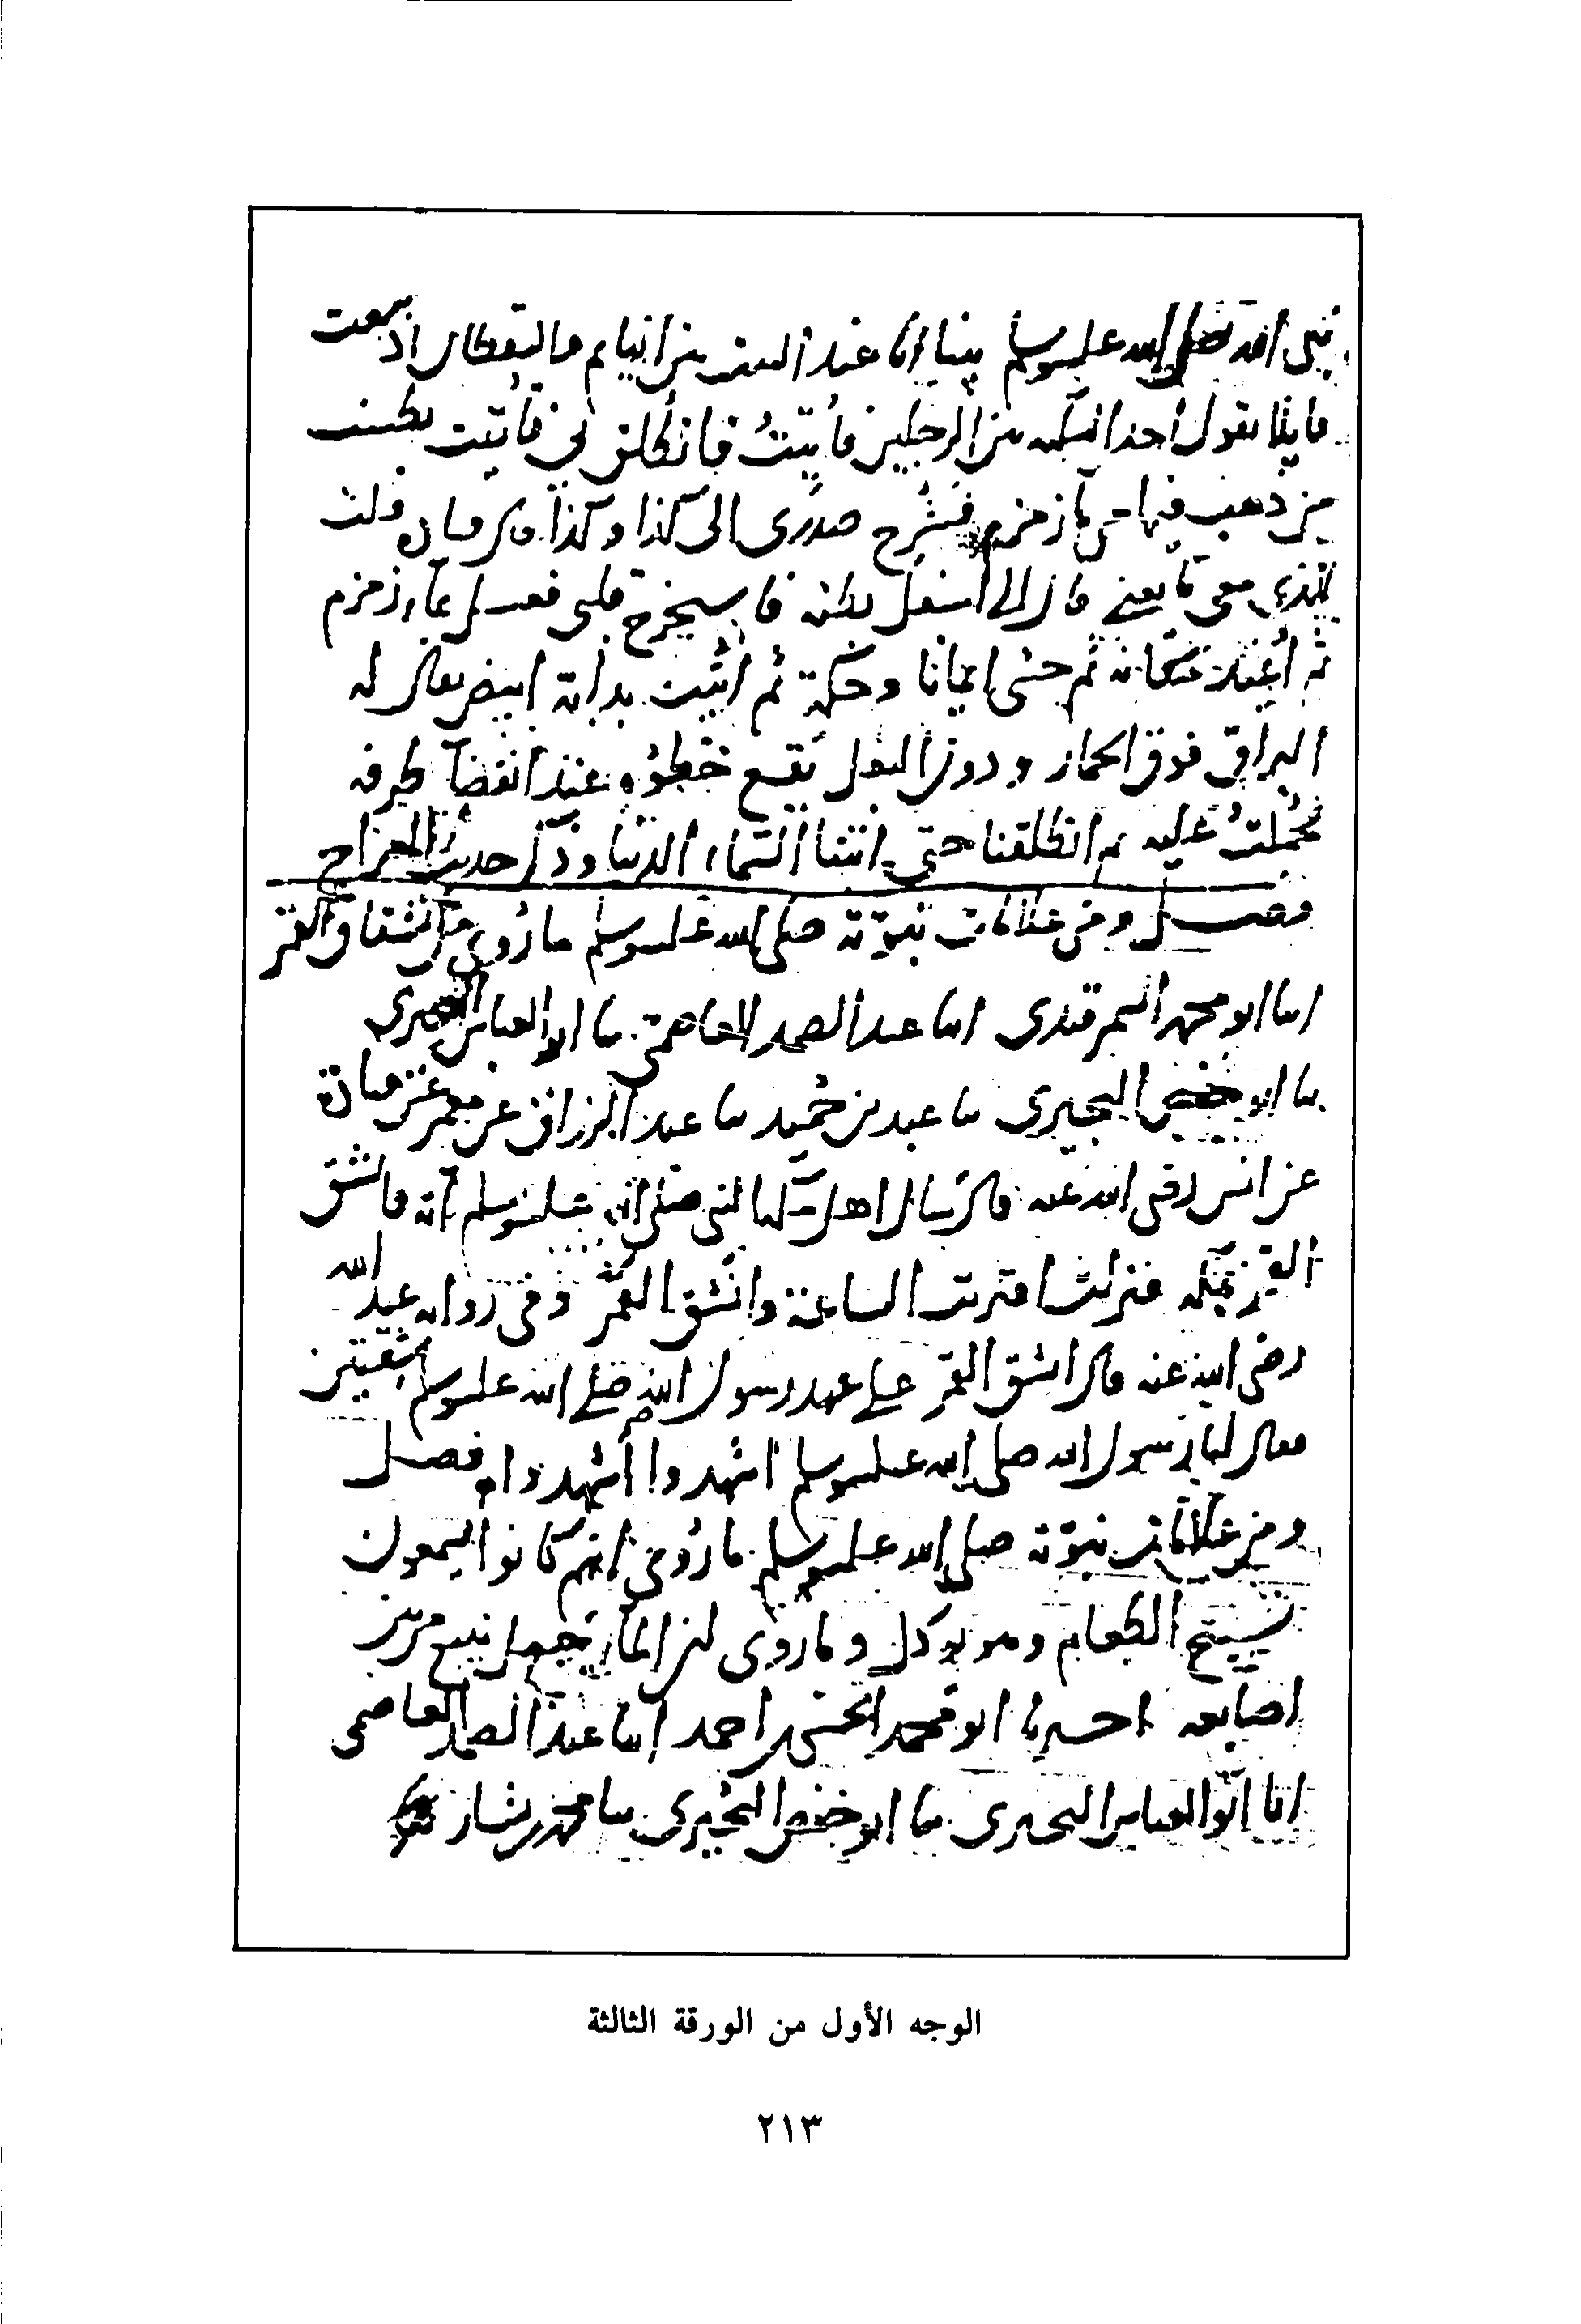 نبي الله صلى الله عليه وسلم بينا انا عند البيت بين النيام واليقظان اذ سمعت
قايلا يقول احد الثلثه بين الرجلين فأتيتُ فانطلق بي فأتيت بطست
من ذهب فيها من مآ زمزم فشُرح صدري الى كذا وكذا قال قتادة قلت
للذي معي ما يعني قال الى اسفل بطنه فاستخرج قلبي فغسل بمآء زمزم
ثم أعيد مكانه ثم حشي ايمانا وحكمة ثم اتيت بدابة ابيض يقال له
البراق فوق الحمار ودون البغل يقع خطوُه عند انقضآ طرفه
فحُملتُ عليه ثم انطلقنا حتى اتينا السمآء الدنيا وذكر حديث المعراج
فصل ومن علامات نبوّته صلى الله عليه وسلم ما رُوي من انشقاق القمر
انبا ابو محمد السمرقندي انبا عبد الصمد العاصمي ثنا ابو العباس البحيري
ثنا ابو حفص البجيري ثنا عبد بن حُميد ثنا عبد الرزاق عن معمر عن قتادة
عن انس رضى الله عنه قال سال اهل مكة النبي صلى الله عليه وسلم آية فانشق
القمر بمكه فنزلت اقتربت الساعة وانشق القمر وفي رواية عبد الله
رضى الله عنه قال انشق القمر على عهد رسول الله صلى الله عليه وسلم بشقتين
فقال لنا رسول الله صلى الله عليه وسلم اشهدوا أشهدوا فصل
ومن علامات نبوّته صلى الله عليه وسلم ما رُوي انهم كانوا يسمعون
تسبيح الطعام وهو يوكل وما روى ان المآ جعل ينبع من بين
اصابعه اخبرنا ابو محمد الحسن بن احمد انبا عبد الصمد العاصمي
انا ابو العباس البحيري ثنا ابو حفص البُجيري ثنا محمد بن بشار
الوجه الأول من الورقة الثالثة
٢١٣